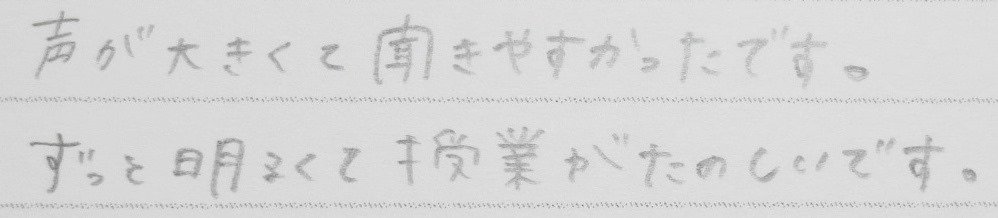 声が大きくて聞きやすかったです。
ずっと明るくて授業がたのしいです。